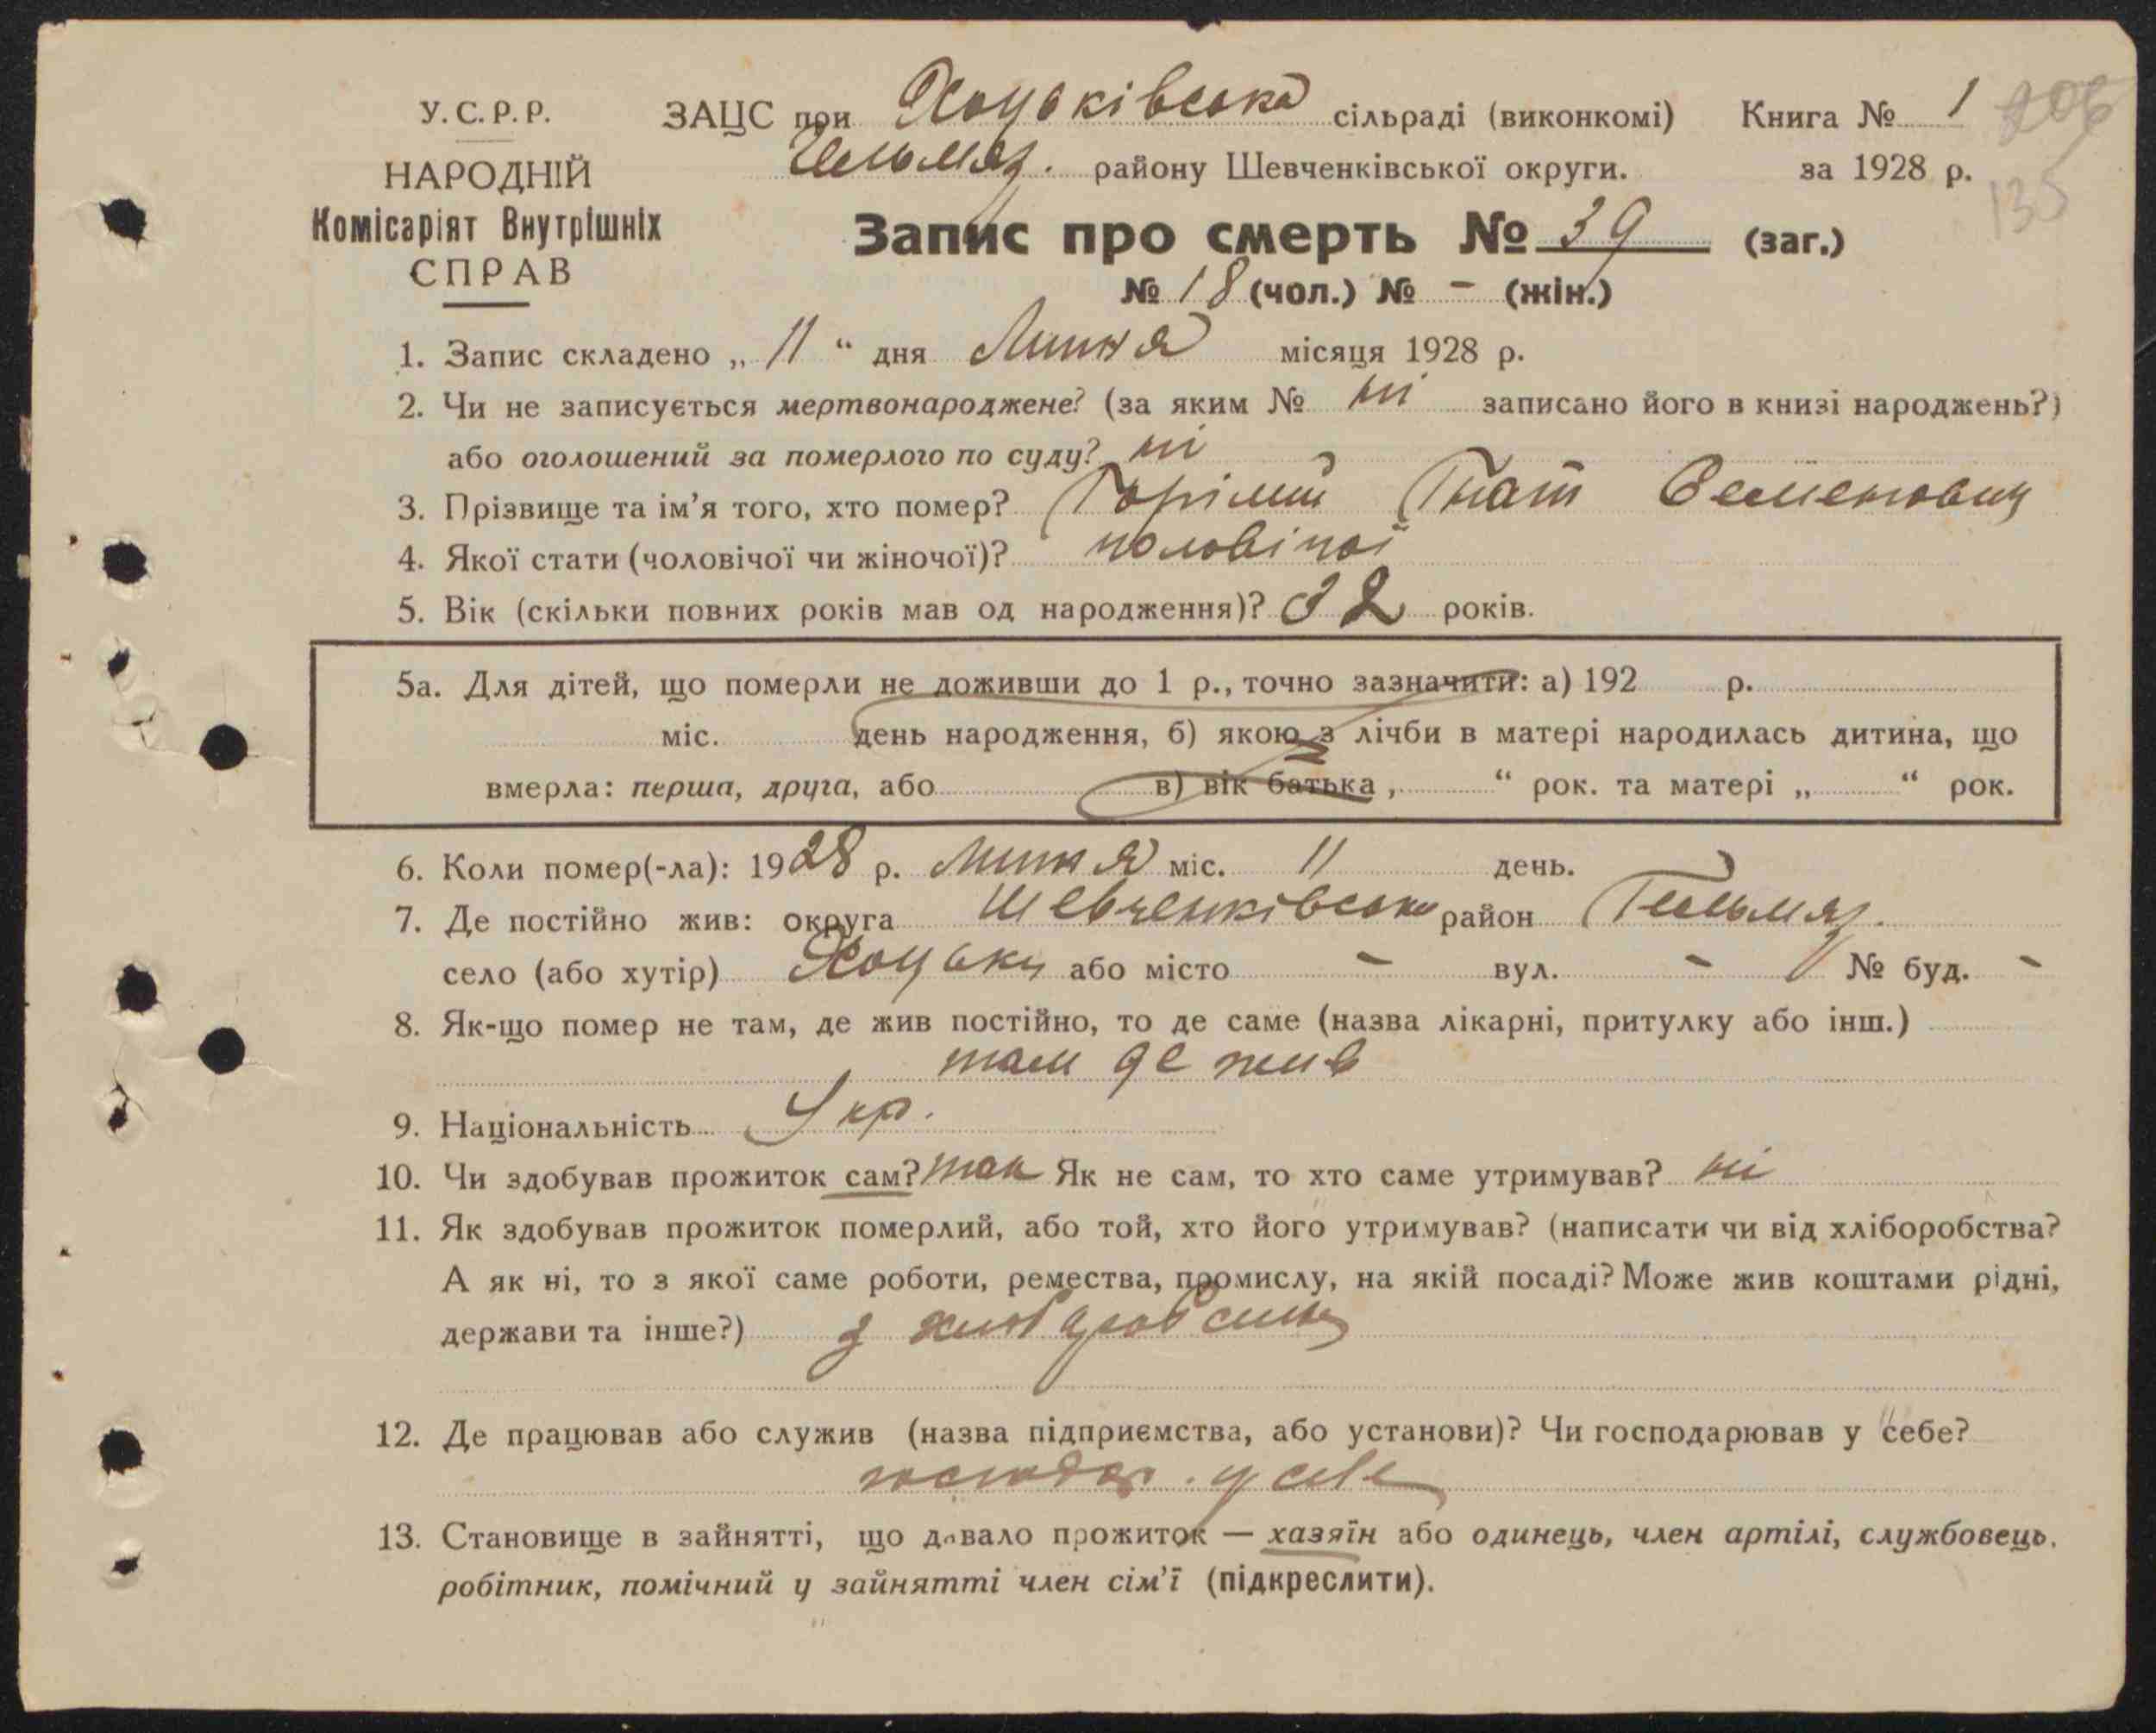 У.С.Р.Р. ЗАЦС при Хоцьківська сільраді (виконкомі) Книга № 1 206
Гельмяз. району Шевченківської округи. за 1928 р.
НАРОДНІЙ 135
Комісаріят Внутрішніх Запис про смерть № 39 (заг.)
СПРАВ
№ 18 (чол.) № - (жін.)
1. Запис складено „ 11 “ дня Липня місяця 1928 р.
2. Чи не записується мертвонароджене? (за яким № ні записано його в книзі народжень?)
або оголошений за померлого по суду? ні
3. Прізвище та ім’я того, хто помер? Горілий Гнат Семенович
4. Якої стати (чоловічої чи жіночої)? чоловічої
5. Вік (скільки повних років мав од народження)? 32 років.
5а. Для дітей, що померли не доживши до 1 р., точно зазначити: а) 192 р.
міс. день народження, б) якою з лічби в матері народилась дитина, що
вмерла: перша, друга, або в) вік батька , “ рок. та матері „ “ рок.
6. Коли помер(-ла): 1928 р. Липня міс. 11 день.
7. Де постійно жив: округа Шевченківська район Гельмяз.
село (або хутір) Хоцьки або місто - вул. - № буд. -
8. Як-що помер не там, де жив постійно, то де саме (назва лікарні, притулку або інш.)
там де жив
9. Національність Укр.
10. Чи здобував прожиток сам? так Як не сам, то хто саме утримував? ні
11. Як здобував прожиток померлий, або той, хто його утримував? (написати чи від хліборобства?
А як ні, то з якої саме роботи, ремества, промислу, на якій посаді? Може жив коштами рідні,
держави та інше?) з
12. Де працював або служив (назва підприємства, або установи)? Чи господарював у себе?
господар. у себе
13. Становище в зайнятті, що давало прожиток — хазяїн або одинець, член артілі, службовець,
робітник, помічний у зайнятті член сім’ї (підкреслити).